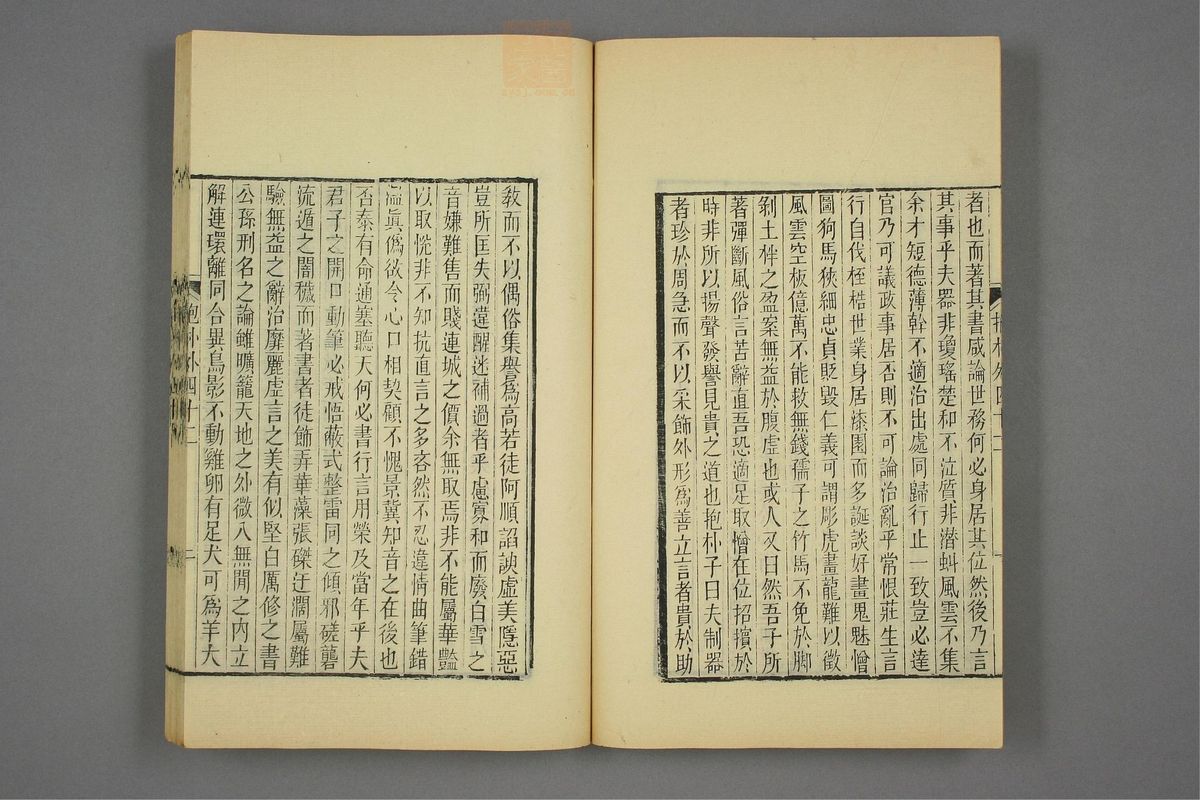 者也而著其書咸論世務何必身居其位然後乃言
其事乎夫器非瓊瑤楚和不泣質非潛虯風雲不集
余才短德薄幹不適治出處同歸行止一致豈必達
官乃可議政事居否則不可論治亂乎常恨莊生言
行自伐桎梏世業身居漆園而多誕談好畫鬼魅憎
圖狗馬狹細忠貞貶毀仁義可謂彫虎畫龍難以徵
風雲空板億萬不能救無錢孺子之竹馬不免於脚
剝土柈之盈案無益於腹虛也或人又曰然吾子所
著彈斷風俗言苦辭直吾恐適足取憎在位招擯於
時非所以揚聲發譽見貴之道也抱朴子曰夫制器
者珍於周急而不以采飾外形爲善立言者貴於助
教而不以偶俗集譽爲高若徒阿順諂諛虛美隱惡
豈所匡失弼違醒迷補過者乎慮寡和而廢白雪之
音嫌難售而賤連城之價余無取焉非不能屬華豔
以取悅非不知抗直言之多吝然不忍違情曲筆錯
濫眞僞欲令心口相契顧不愧景冀知音之在後也
否泰有命通塞聽天何必書行言用榮及當年乎夫
君子之開口動筆必戒悟蔽式整雷同之傾邪磋礱
流遁之闇穢而著書者徒飾弄華藻張磔迂濶屬難
驗無益之辭治靡麗虛言之美有似堅白厲修之書
公孫刑名之論雖曠籠天地之外微入無間之內立
解連環離同合異鳥影不動雞卵有足犬可爲羊大
抱朴外四十二
二